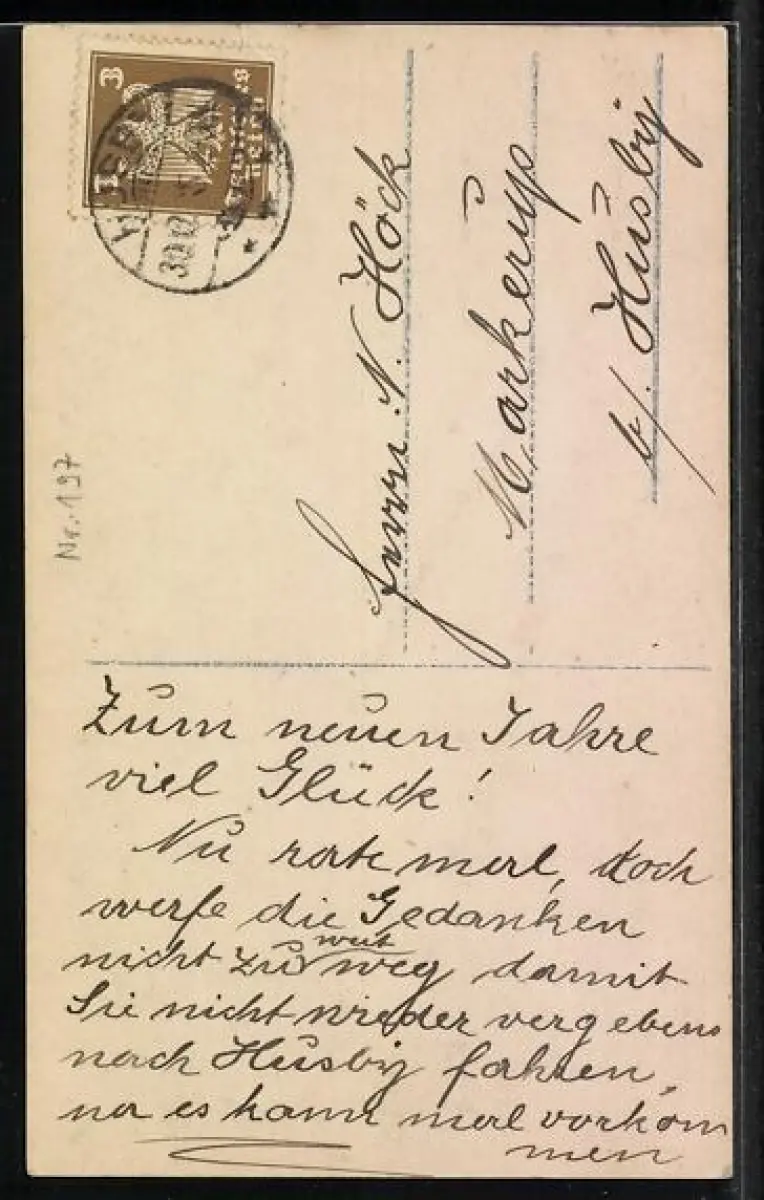 3
Deutsches Reich
HUSBY
30.12
Nr. 197
Herrn N. Höck
Markerup
b/. Husby
Zum neuen Jahre
viel Glück!
Nu rate mal, doch
werfe die Gedanken
nicht zu weit weg damit
Sie nicht wieder vergebens
nach Husby fahren,
na es kann mal vorkom
men